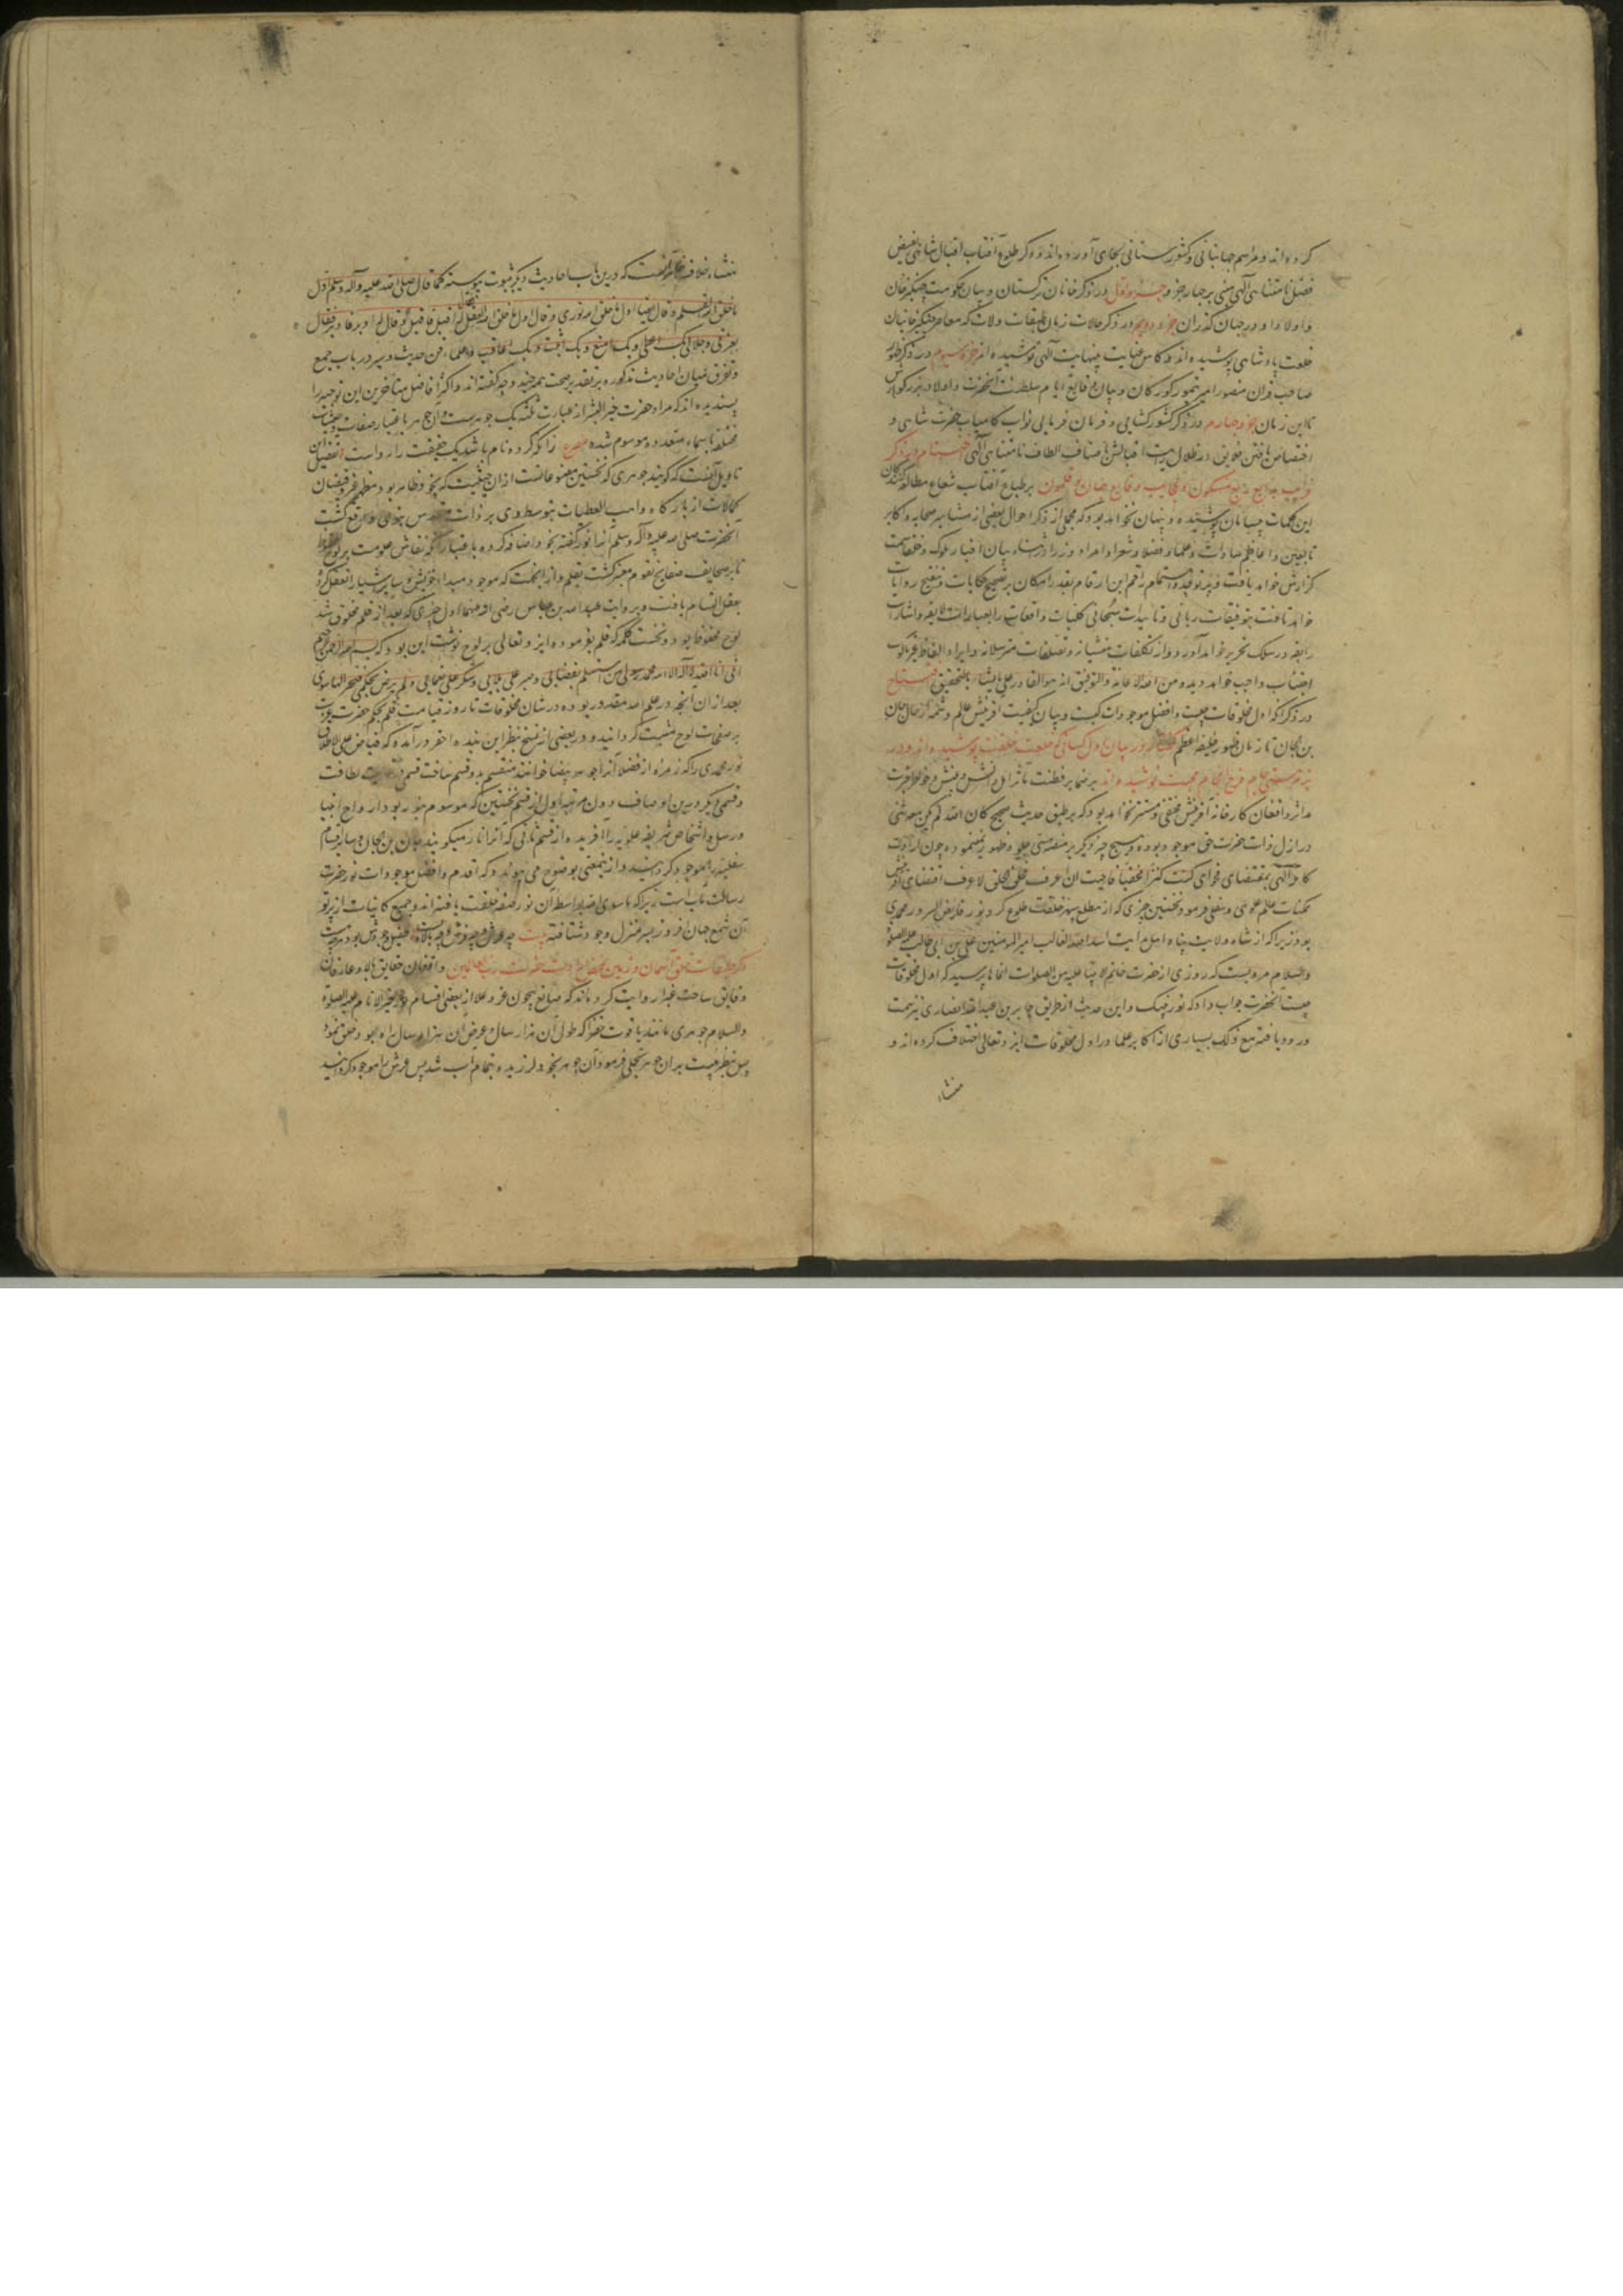 کرده‌اند و مراسم جهانبانی و کشورستانی بجای آورده‌اند و ذکر طلوع آفتاب اقبال شاهی بفیض
فضل نامتناهی الهی مبنی بر چهار جزو جزو اول در ذکر خانان ترکستان و بیان حکومت چنگیز خان
و اولاد او در جهان گذران جزو دویم در ذکر حالات زمان طبقات ولات که معاصر چنگیزخانیان
خلعت پادشاهی پوشیده‌اند و کاس عنایت بینهایت الهی نوشیده‌اند جزو سیوم در ذکر ظهور
صاحب قران منصور امیر تیمور کورکان و بیان وقایع ایام سلطنت آنحضرت و اولاد بزرگوارش
تا این زمان جزو چهارم در ذکر کشورکشایی و فرمان فرمایی نواب کامیاب حضرت شاهی و
اختصاص یافتن خلایق در ظلال رایت اقبالش باصناف الطاف نامتناهی الهی اختتام در ذکر
غرایب بدایع ربع مسکون و عجایب وقایع جهان بوقلمون بر طباع آفتاب شعاع مطالعه کنندگان
این کلمات پریشان پوشیده و پنهان نخواهد بود که مجملی از ذکر احوال بعضی از مشاهیر صحابه و اکابر
تابعین و اعاظم سادات و علما و فضلا و شعرا و امراء و وزرا در اثناء بیان اخبار ملوک و خلفا سمت
گزارش خواهد یافت و پرتو توجه و اهتمام راقم این ارقام بقدر امکان بر تصحیح حکایات و تنقیح روایات
خواهد تافت بتوفیقات ربانی و تاییدات سبحانی کلیات واقعات را بعبارات لایقه و اشارات
رایقه در سلک تحریر خواهد آورد و از تکلفات منشیانه و تصلفات مترسلانه و ایراد الفاظ غیر مالوف
اجتناب واجب خواهد دید و من الله الاعانة و التوفیق انه هو القادر علی ما یشاء بالتحقیق افتتاح
در ذکر آنکه اول مخلوقات چیست و افضل موجودات کیست و بیان کیفیت آفرینش عالم و شمه از حال جان
بن جان تا زمان ظهور خلیفه اعظم گفتار در بیان اول کسانی که خلعت خلقت پوشیده‌اند و در
بزم هستی جام فرح انجام محبت نوشیده‌اند بر ضمایر فطنت مآثر اهل دانش و بینش و خواطر خبرت
ماثر واقفان کارخانه آفرینش مختفی و مستتر نخواهد بود که بر طبق حدیث صحیح کان الله و لم یکن معه شئی
در ازل ذات حضرت حق موجود بوده و هیچ چیز دیگر بر منصه هستی جلوه ظهور نمینموده چون ارادت
کامله الهی بمقتضای فحوای کنت کنزا مخفیا فاحببت ان اعرف فخلقت الخلق لاعرف اقتضای آفرینش
ممکنات عالم علوی و سفلی فرمود نخستین چیزی که از مطلع سپهر خلقت طلوع کرد نور فایض السرور محمدی
بود زیرا که از شاه ولایت پناه اسد الله الغالب امیر المومنین علی بن ابی طالب علیه الصلوة
و السلام مرویست که روزی از حضرت خاتم الانبیا علیه من الصلوات انماها پرسید که اول مخلوقات
چیست آنحضرت جواب داد که نور نبیک و این حدیث از طریق جابر بن عبد الله انصاری نیز سمت
ورود یافته مع ذلک بسیاری از اکابر علما در اول مخلوقات ایزد تعالی اختلاف کرده‌اند و
منشاء
منشاء خلاف آنست که درین باب احادیث دیگر ثبوت پیوسته کما قال صلی الله علیه و آله و سلم اول
ما خلق الله القلم و قال ایضا اول ما خلق الله نوری و قال اول ما خلق الله العقل فقال له اقبل فاقبل ثم قال له ادبر فادبر فقال
بعزتی و جلالی بک اعطی و بک امنع و بک اثیب و بک اعاقب و علماء فن حدیث و سیر در باب جمع
و توفیق میان احادیث مذکوره بر تقدیر صحت همه چند وجه گفته‌اند و اکثر افاضل متاخرین این توجیه را
پسندیده‌اند که مراد حضرت خیر البشر از عبارت ثلثه یک جوهرست و آن جوهر باعتبار صفات و حیثیات
مختلفه باسماء متعدده موسوم شده مصرع زانکه گر ده نام باشد یک حقیقت را رواست و تفصیل این
تاویل آنست که گویند جوهری که نخستین مصنوعاتست از آن حیثیت که بخود ظاهر بود و مظهر غیر و فیضان
کمالات از بارگاه واهب العطیات بتوسط وی بر ذات مقدس نبوی واقع گشت
آنحضرت صلی الله علیه و آله و سلم آنرا نور گفته بخود اضافه کرده و باعتبار آنکه نقاش علومست بر لوح محفوظ
تا بر صحایف صفایح نفوس معبر گشت بقلم و از آنجهت که موجود مبدا خویش و سایر اشیا را تعقل کرد
بعقل اتسام یافت و بروایت عبد الله بن عباس رضی الله عنهما اول چیزی که بعد از قلم مخلوق شد
لوح محفوظ بود و نخست کلمه که قلم بفرموده ایزد تعالی بر لوح نوشت این بود که بسم الله الرحمن الرحیم
انی انا الله لا اله الا انا محمد رسولی من استسلم بقضائی و صبر علی بلایی و شکر علی نعمایی و لم یرض بحکمی فلیختر الها سوای
بعد از آن آنچه در علم الله مقدر بوده در شان مخلوقات تا روز قیامت قلم بحکم حضرت عزت
بر صفحات لوح مثبت گردانید و در بعضی از نسخ بنظر این بنده احقر درآمده که فیاض علی الاطلاق
نور محمدی را که زمره از فضلا آنرا جوهر بیضا خوانند منقسم بدو قسم ساخت قسمی در غایت لطافت
و قسمی دیگر درین اوصاف دون مرتبه اول از قسم نخستین که موسوم بنور بود ارواح انبیا
و رسل و اشخاص شریفه علویه را آفریده و از قسم ثانی که آنرا نار میگویند جان بن جان و سایر اقسام
سفلیه را موجود گردانید و ازینمعنی بوضوح می‌پیوندد که اقدم و افضل موجودات نور حضرت
رسالت مآب است زیرا که ماسوی الله بواسطه آن نور صفت خلقت یافته‌اند و جمیع کاینات از پرتو
آن شمع جهان افروز بسر منزل وجود شتافته بیت
ذکر خلقت آسمان و زمین بمقتضای ارادت حضرت رب العالمین واقفان حقایق بلاد و عارفان
دقایق ساحت غبرا روایت کرده‌اند که صانع بیچون عز و علا از بعضی اقسام نور خیر الانام علیه الصلوة
و السلام جوهری مانند یاقوت خضرا که طول آن هزار سال و عرض آن هزار سال راه بود خلق نمود
پس بنظر هیبت بدان جوهر تجلی فرمود آن جوهر بخود لرزیده تمام آب شد پس عرش را موجود گردانید